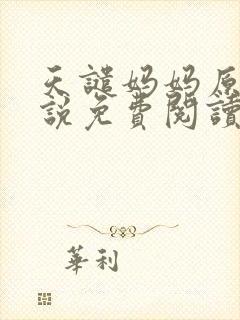 天譴妈妈原
說免費閱讀
華利